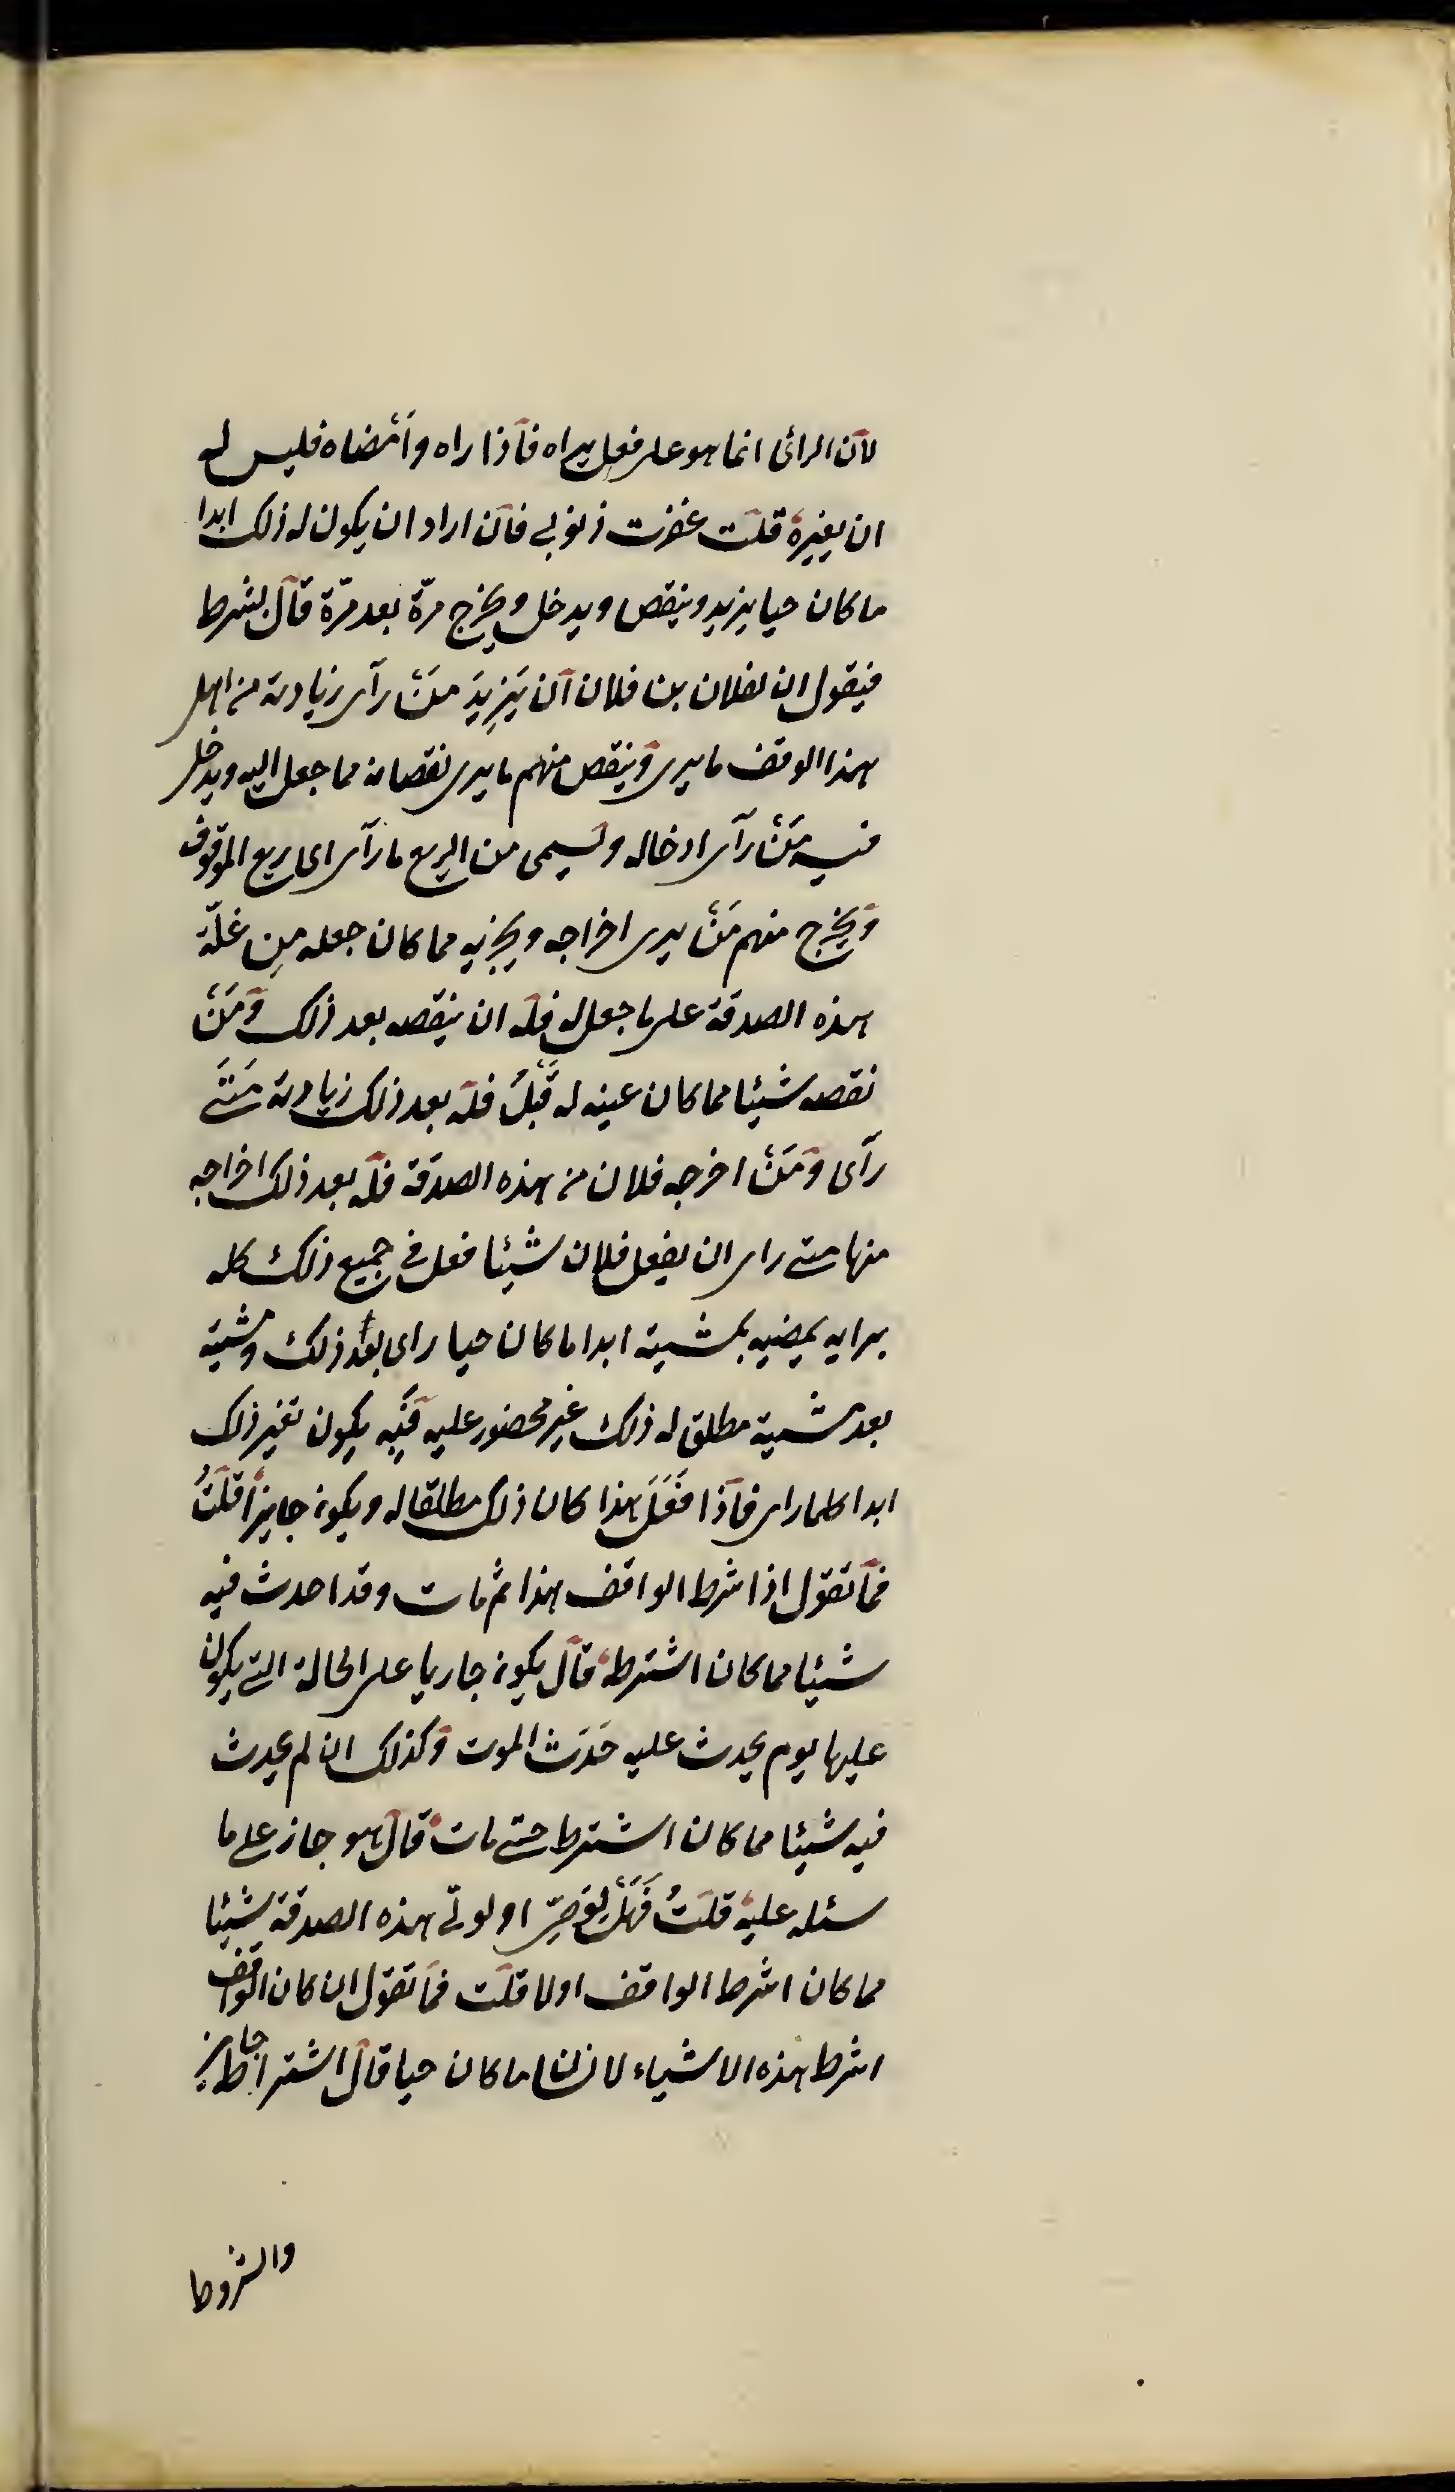 لان الرائى انما هو على فعل يراه فاذا راه وامضاه فليس له
ان يغيره قلت غفرت ذنوبي فان اراد ان يكون له ذلك ابدا
ما كان حيا يزيد وينقص ويدخل ويخرج مرّة بعد مرّة قال يشرط
فيقول ان لفلان بن فلان ان يَزِيدَ مَنْ رآى زيادته من اهل
هذا الوقف ما يرى وينقص منهم ما يرى نقصانه مما جعل اليه ويدخل
فيه مَنْ رآى ادخاله ويسمى من الريع ما رآى اى ريع الموقوف
ويخرج منهم مَنْ يرى اخراجه ويجزيه مما كان جعله مِن غلّة
هذه الصدقة على ما جعل له فله ان ينقصه بعد ذلك ومَنْ
نقصه شيئا مما كان عينه له قَبْلُ فله بعد ذلك زيادته مَتَى
رآى ومَنْ اخرجه فلان من هذه الصدقة فله بعد ذلك اخراجه
منها متى راى ان يفعل فلان شيئا فعل في جميع ذلك كله
برايه يمضيه بمشيته ابدا ما كان حيا راى بعد ذلك ومشيته
بعد مشية مطلق له ذلك غير محضور عليه فيه يكون تغير ذلك
ابدا كلما راى فاذا فَعَلَ هذا كان ذلك مطلقا له ويكون جايزا قلتُ
فما تقول اذا شرط الواقف هذا ثم مات وقد احدث فيه
شيئا مما كان اشترطه قال يكون جاريا على الحالة التي يكون
عليها يوم يحدث عليه حَدَث الموت وكذلك ان لم يحدث
فيه شيئا مما كان اشترط حتى مات قال هو جاز على ما
سئله عليه قلتُ فَهَلْ لوصِيّ او لولّى هذه الصدقة شيئا
مما كان اشرط الواقف اولا قلت فما تقول ان كان الواقف
اشرط هذه الاشياء لانسان ما كان حيا قال اشتراط جايز
والشروط